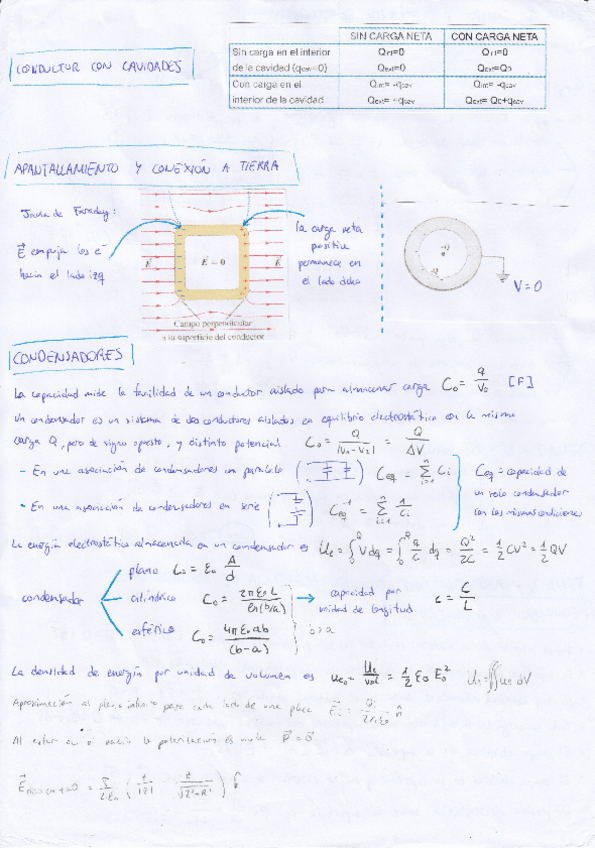 CONDUCTOR CON CAVIDADES
SIN CARGA NETA CON CARGA NETA
Sin carga en el interior
de la cavidad (qcav=0)
Qint=0 Qint=0
Qext=0
Con carga en el
interior de la cavidad
Qint= -qcav Qint= -qcav
Qext= Q0+qcav
APANTALLAMIENTO Y CONEXIÓN A TIERRA
Jaula de Faraday:
E⃗ empuja los e⁻
hacia el lado izq
la carga neta
positiva
permanece en
el lado dcho
E⃗ E⃗ = 0 E⃗
Campo perpendicular
a la superficie del conductor
-Q
V=0
CONDENSADORES
La capacidad mide la facilidad de un conductor aislado para almacenar carga C₀ = q/V₀ [F]
Un condensador es un sistema de dos conductores aislados en equilibrio electrostático con la misma
carga Q, pero de signo opuesto, y distinto potencial C₀ = Q/|V₁-V₂| = Q/ΔV
- En una asociación de condensadores en paralelo Ceq = Σⁿᵢ₌₁ Cᵢ
- En una asociación de condensadores en serie Ceq⁻¹ = Σⁿᵢ₌₁ 1/Cᵢ
Ceq = capacidad de
un solo condensador
con las mismas condiciones
La energía electrostática almacenada en un condensador es Ue = ∫₀Q V dq = ∫₀Q q/C dq = Q²/2C = 1/2 CV² = 1/2 QV
condensador
plano C₀ = ε₀ A/d
cilíndrico C₀ = 2πε₀L/ln(b/a)
esférico C₀ = 4πε₀ab/(b-a)
b>a
capacidad por
unidad de longitud c = C/L
La densidad de energía por unidad de volumen es ue₀ = Ue/vol = 1/2 ε₀ E₀² Ue = ∭ ue dV
Aproximación al plano infinito para cada lado de una placa
Al estar en el vacío la polarización es nula P⃗ = 0⃗